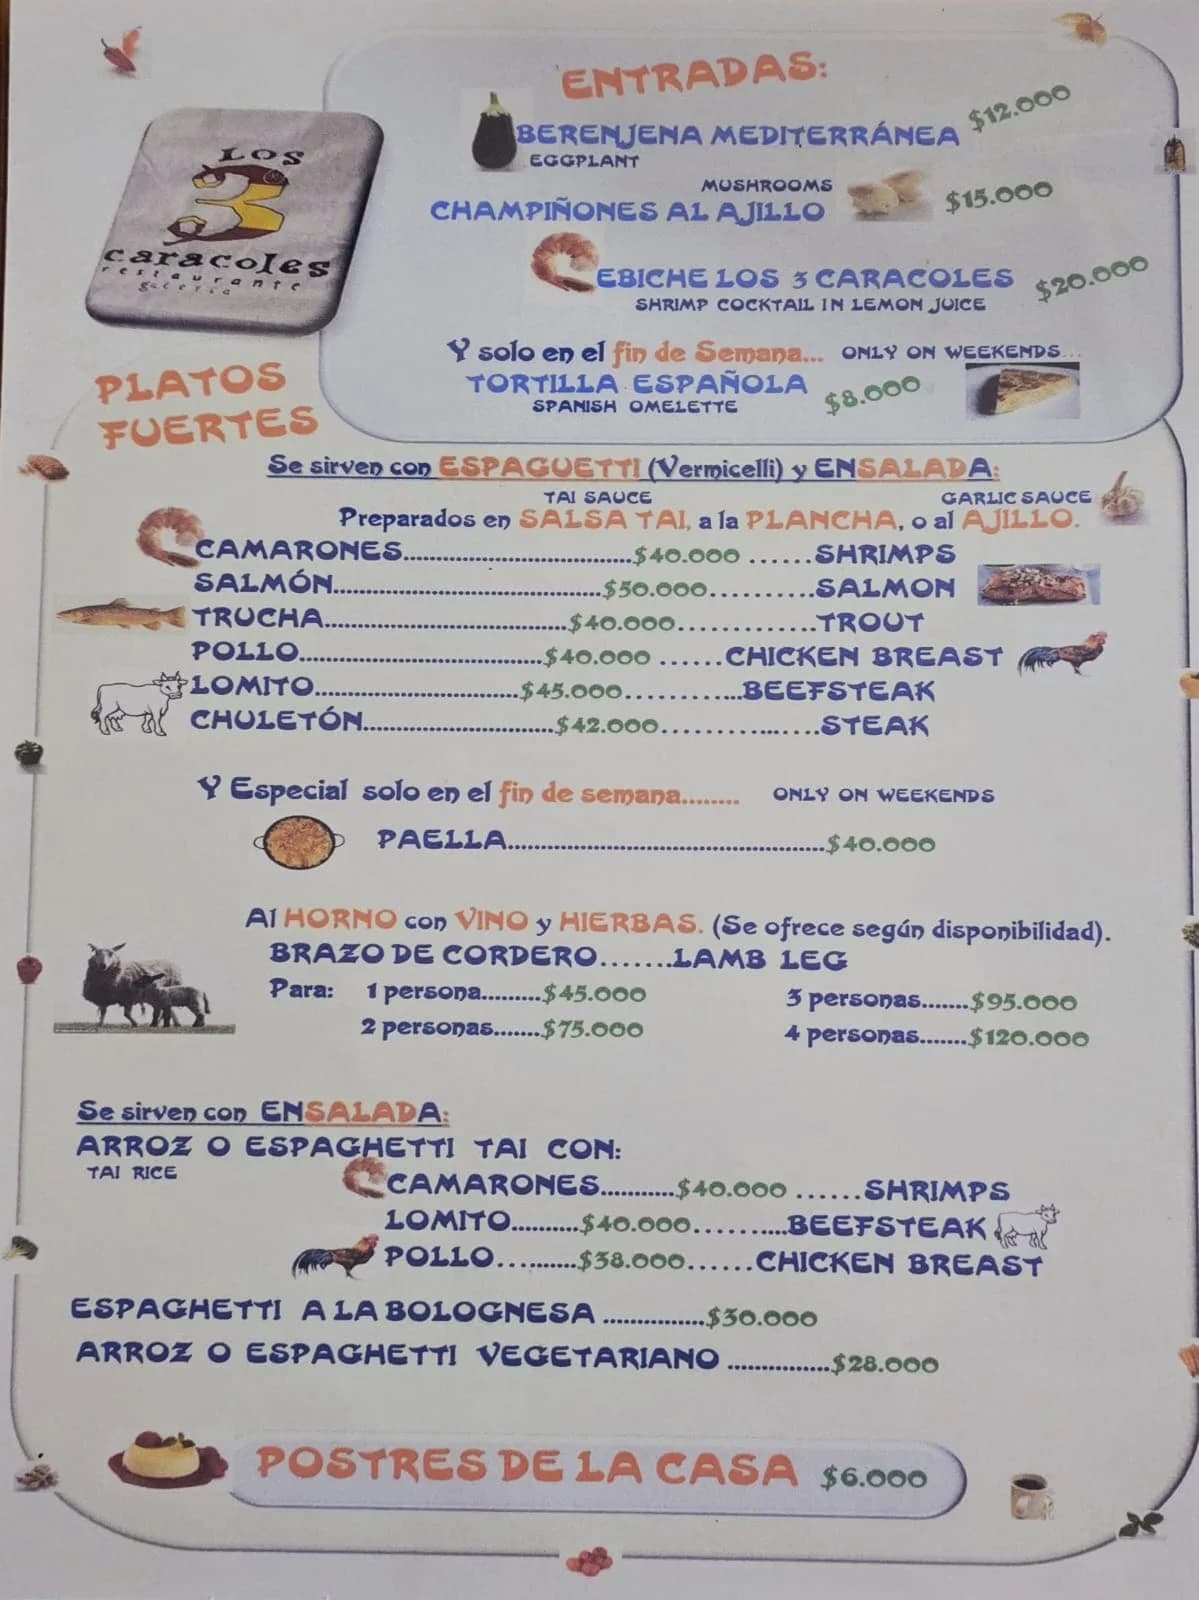 LOS
3
caracoles
restaurante
galería
ENTRADAS:
BERENJENA MEDITERRÁNEA $12.000
EGGPLANT
MUSHROOMS
CHAMPIÑONES AL AJILLO $15.000
CEBICHE LOS 3 CARACOLES $20.000
SHRIMP COCKTAIL IN LEMON JUICE
Y solo en el fin de Semana... ONLY ON WEEKENDS...
TORTILLA ESPAÑOLA $8.000
SPANISH OMELETTE
PLATOS
FUERTES
Se sirven con ESPAGUETTI (Vermicelli) y ENSALADA:
TAI SAUCE GARLIC SAUCE
Preparados en SALSA TAI, a la PLANCHA, o al AJILLO.
CAMARONES..............................$40.000 ......SHRIMPS
SALMÓN...................................$50.000..........SALMON
TRUCHA................................$40.000.............TROUT
POLLO................................$40.000 ......CHICKEN BREAST
LOMITO...........................$45.000............BEEFSTEAK
CHULETÓN.........................$42.000................STEAK
Y Especial solo en el fin de semana........ ONLY ON WEEKENDS
PAELLA..........................................$40.000
Al HORNO con VINO y HIERBAS. (Se ofrece según disponibilidad).
BRAZO DE CORDERO.......LAMB LEG
Para: 1 persona.........$45.000 3 personas.......$95.000
2 personas.......$75.000 4 personas.......$120.000
Se sirven con ENSALADA:
ARROZ O ESPAGHETTI TAI CON:
TAI RICE
CAMARONES...........$40.000 ......SHRIMPS
LOMITO..........$40.000............BEEFSTEAK
POLLO...........$38.000......CHICKEN BREAST
ESPAGHETTI A LA BOLOGNESA ...............$30.000
ARROZ O ESPAGHETTI VEGETARIANO ...............$28.000
POSTRES DE LA CASA $6.000